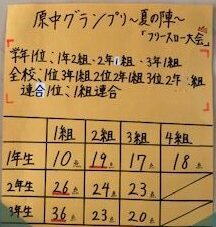 原中グランプリ～夏の陣～
「フリースロー大会」
学年1位；1年2組、2年1組、3年1組
全校；1位3年1組2位2年1組3位2年 組
連合1位；1組連合
1組 2組 3組 4組
1年生 10点 19点 17点 18点
2年生 26点 24点 23点
3年生 36点 23点 20点